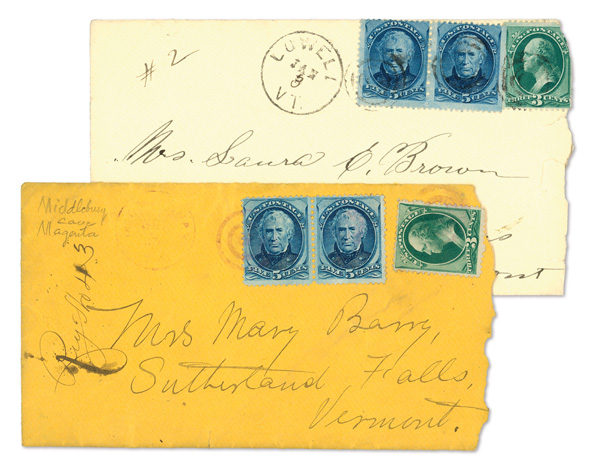 # 2
LOWELL
JAN
VT.
U.S. POSTAGE
FIVE 5 CENTS
U.S. POSTAGE
FIVE 5 CENTS
3 CENTS
Mrs. Laura E. Brown
Middlebury
Magenta
U.S. POSTAGE
FIVE 5 CENTS
U.S. POSTAGE
FIVE 5 CENTS
U.S. POSTAGE
THREE 3 CENTS
Mrs Mary Barry,
Sutherland Falls,
Vermont.